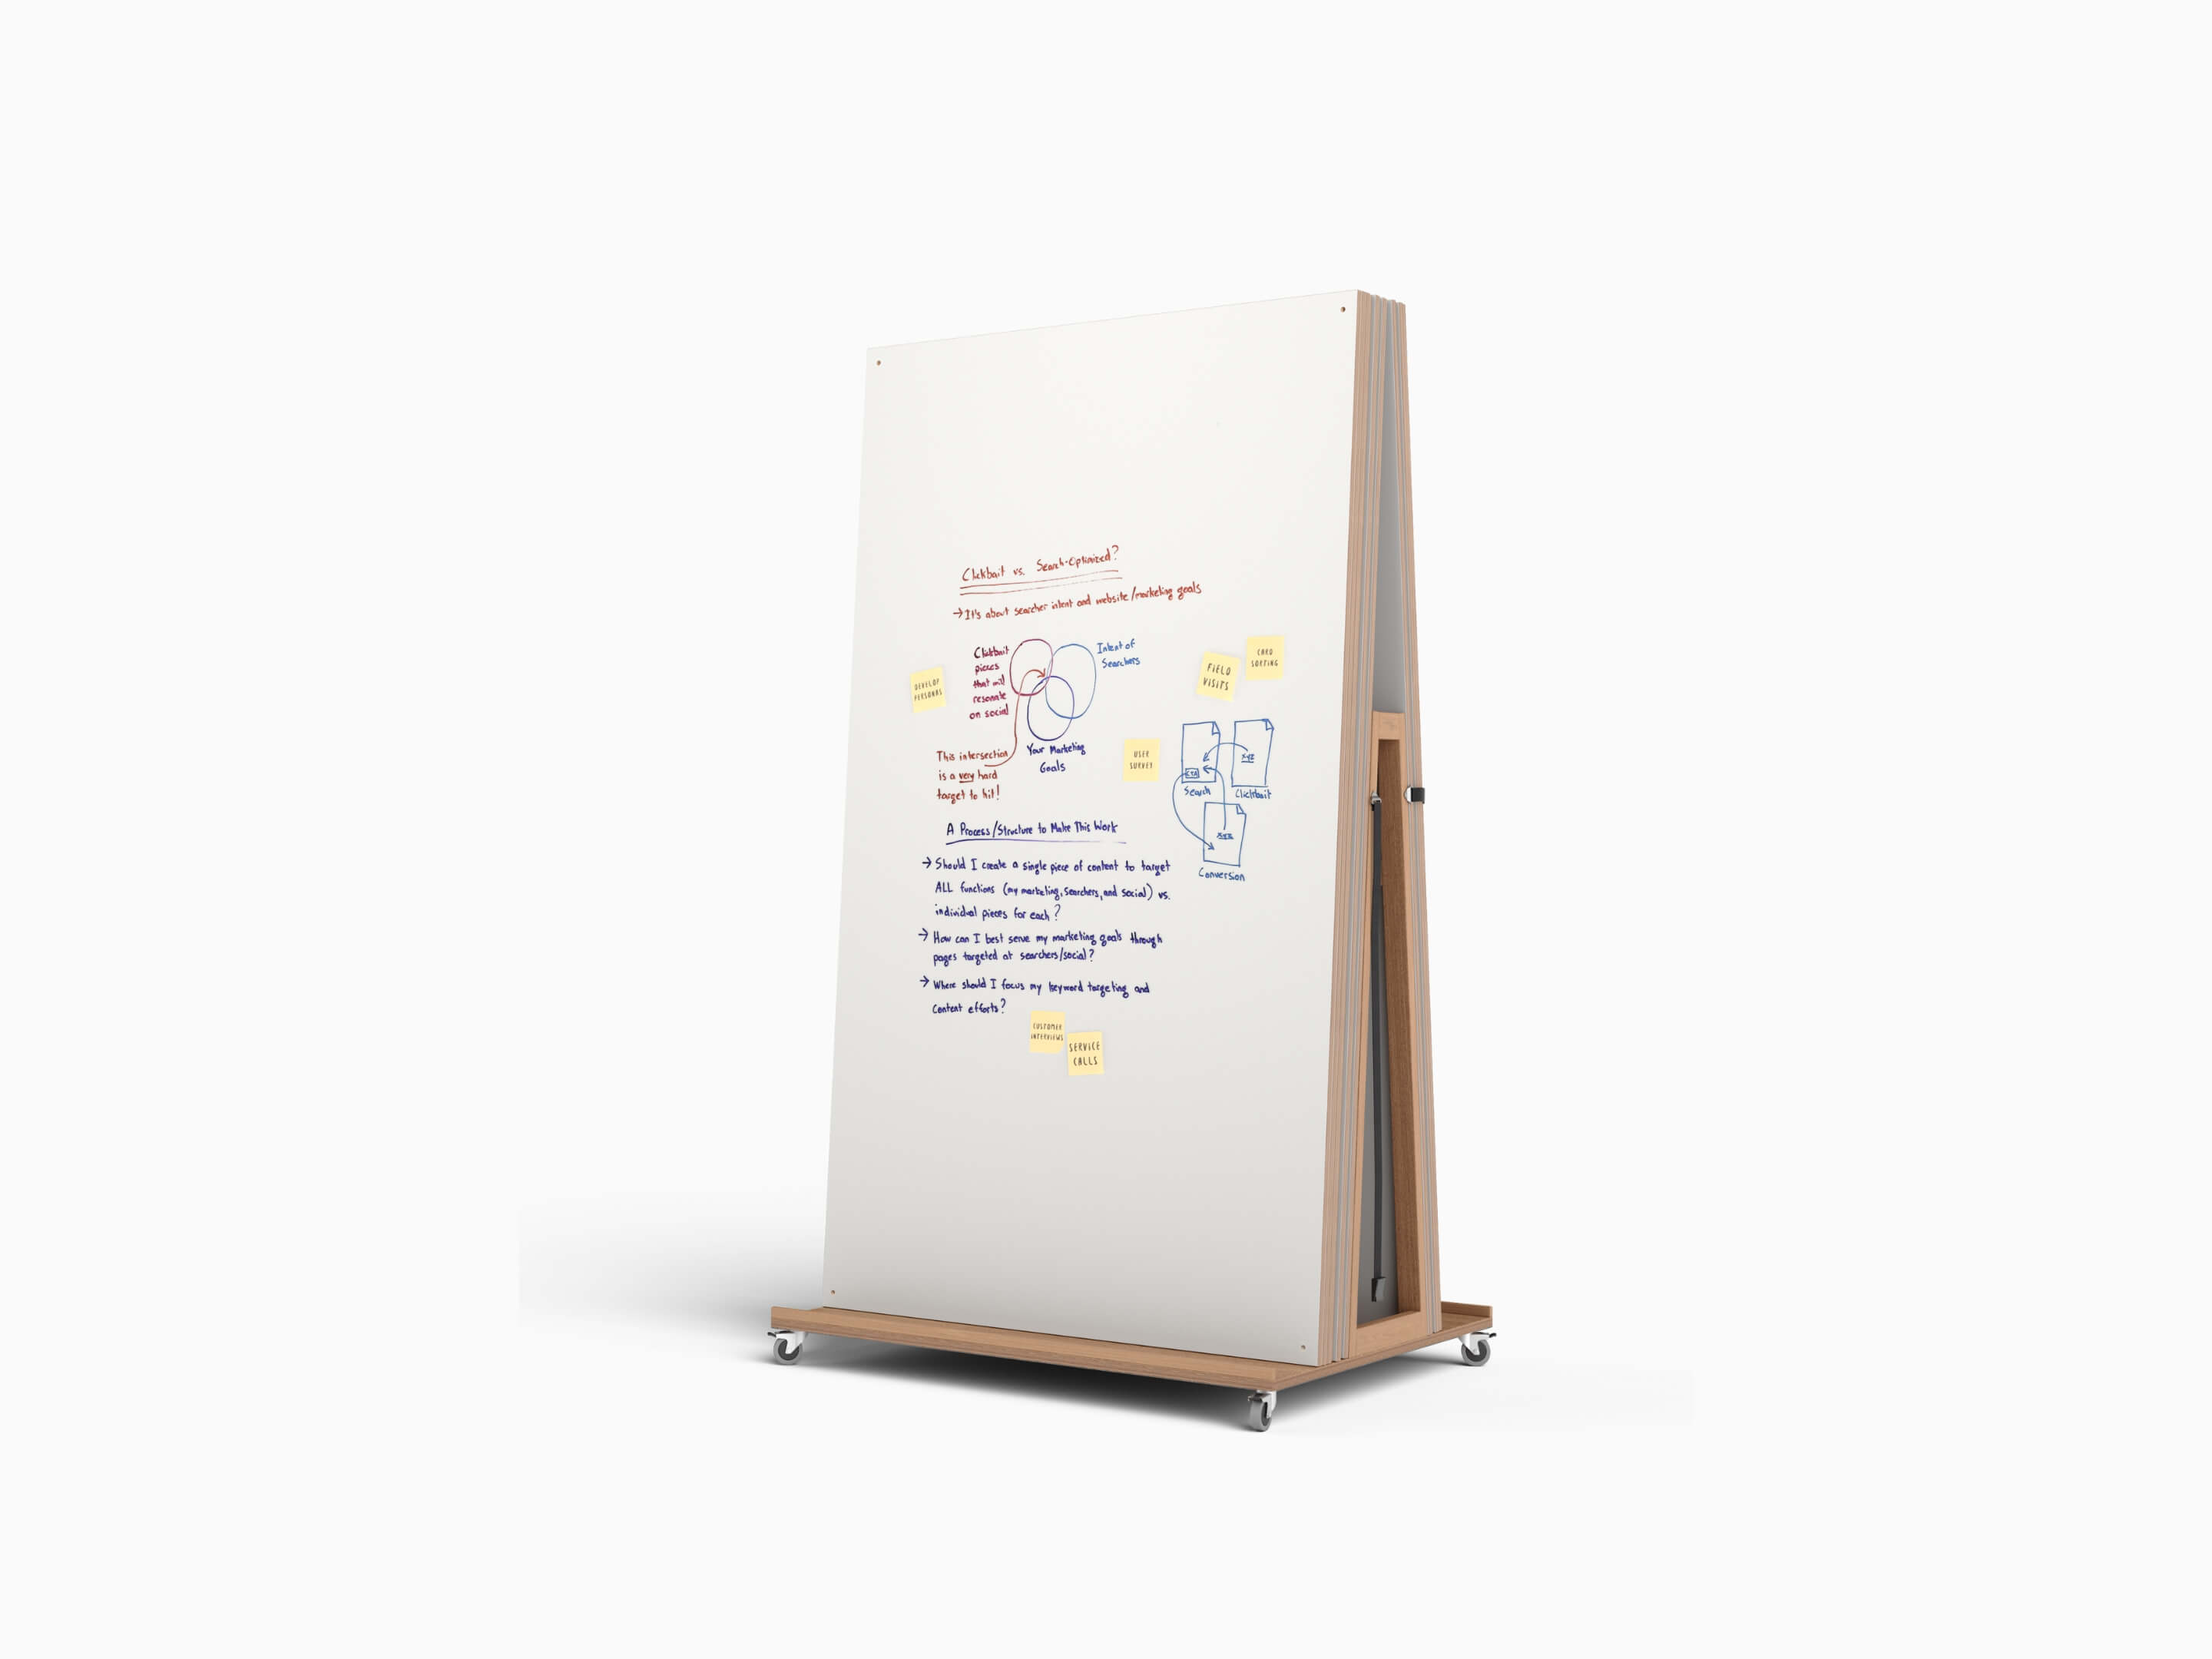 Clickbait vs. Search-Optimized?
→ It's about searcher intent and website/marketing goals
Clickbait
pieces
that will
resonate
on social
Intent of
Searchers
Your Marketing
Goals
This intersection
is a very hard
target to hit!
DEVELOP
PERSONAS
FIELD
VISITS
CARD
SORTING
USER
SURVEY
CTA
XYZ
Search
Clickbait
XYZ
Conversion
A Process/Structure to Make This Work
→ Should I create a single piece of content to target
ALL functions (my marketing, searchers, and social) vs.
individual pieces for each?
→ How can I best serve my marketing goals through
pages targeted at searchers/social?
→ Where should I focus my keyword targeting and
content efforts?
CUSTOMER
INTERVIEWS
SERVICE
CALLS